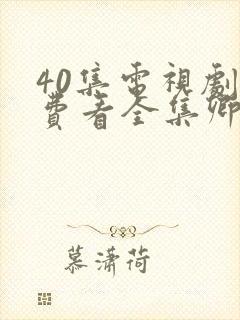 40集電視劇
費看全集卿
慕瀟荷